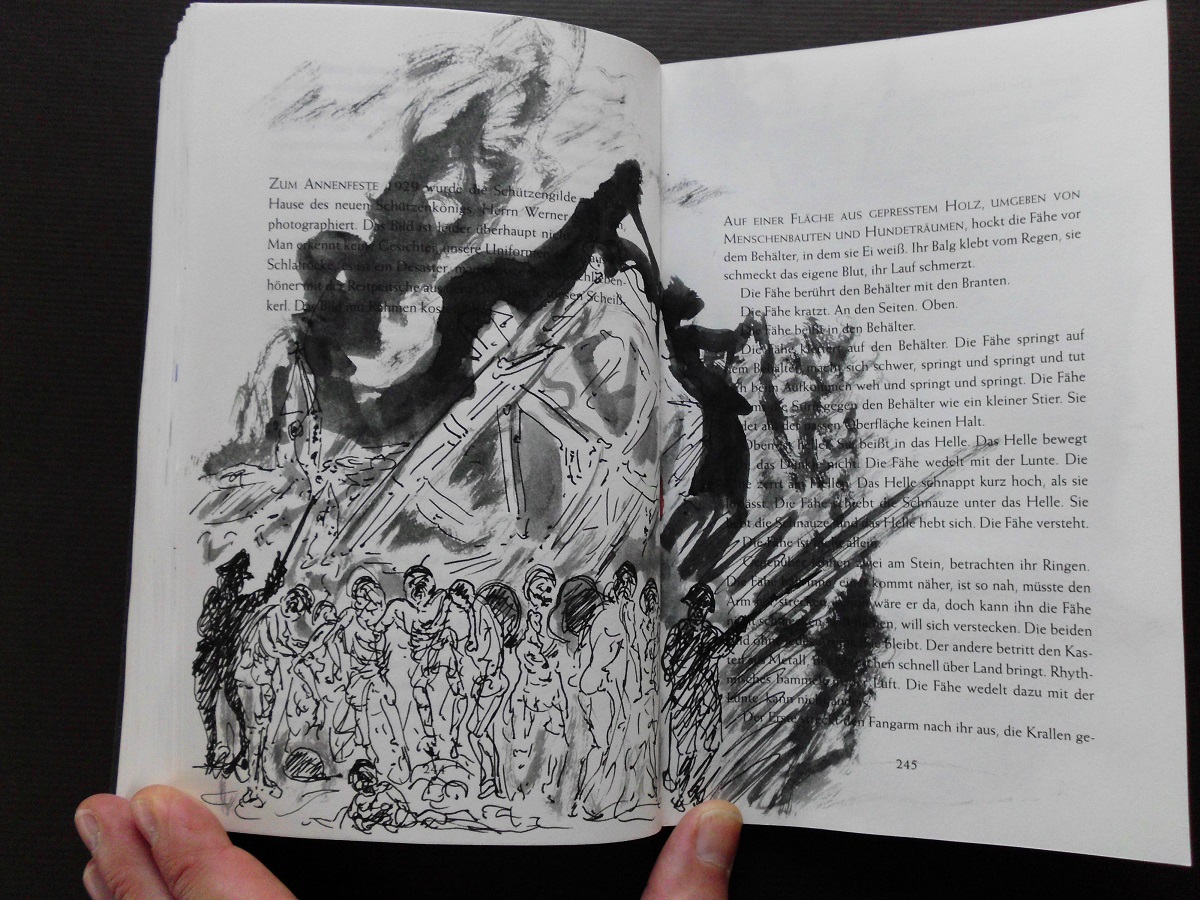 ZUM ANNENFESTE 1929 wurde die Schützengilde
Hause des neuen Schützenkönigs, Herrn Werner
photographiert. Das Bild ist leider überhaupt
Man erkennt keine Gesichter, unsere Uniformen
Schlafröcke, es ist ein Desaster,
höner mit der Reitpeitsche
kerl. Das Bild im Rahmen Scheiß
244
AUF EINER FLÄCHE AUS GEPRESSTEM HOLZ, UMGEBEN VON
MENSCHENBAUTEN UND HUNDETRÄUMEN, hockt die Fähe vor
dem Behälter, in dem sie Ei weiß. Ihr Balg klebt vom Regen, sie
schmeckt das eigene Blut, ihr Lauf schmerzt.
Die Fähe berührt den Behälter mit den Branten.
Die Fähe kratzt. An den Seiten. Oben.
Die Fähe beißt in den Behälter.
Die Fähe klettert auf den Behälter. Die Fähe springt auf
dem Behälter, macht sich schwer, springt und springt und tut
sich beim Aufkommen weh und springt und springt. Die Fähe
die Stirn gegen den Behälter wie ein kleiner Stier. Sie
findet auf der nassen Oberfläche keinen Halt.
Oben ist Helles. Sie beißt in das Helle. Das Helle bewegt
das Dunkle nicht. Die Fähe wedelt mit der Lunte. Die
Fähe zerrt am Hellen. Das Helle schnappt kurz hoch, als sie
loslässt. Die Fähe schiebt die Schnauze unter das Helle. Sie
hebt die Schnauze und das Helle hebt sich. Die Fähe versteht.
Die Fähe ist nicht allein.
Gegenüber zwei am Stein, betrachten ihr Ringen.
Die Fähe kommt näher, ist so nah, müsste den
Arm wäre er da, doch kann ihn die Fähe
will sich verstecken. Die beiden
sind bleibt. Der andere betritt den Kas-
ten aus Metall, schnell über Land bringt. Rhyth-
misches Luft. Die Fähe wedelt dazu mit der
Lunte, kann nicht
Der Erste den Fangarm nach ihr aus, die Krallen ge-
245